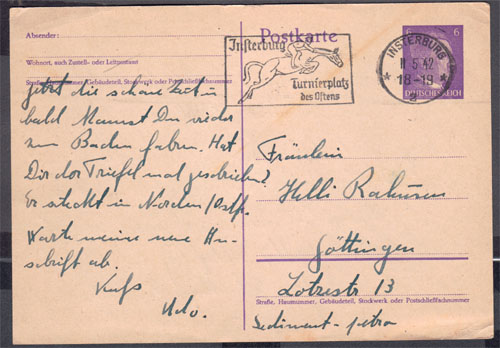 Absender:
Wohnort, auch Zustell- oder Leitpostamt
Straße, Hausnummer, Gebäudeteil, Stockwerk oder Postschließfachnummer
Postkarte
6
Insterburg
Turnierplatz
des Ostens
INSTERBURG
5 42
18-19
DEUTSCHES REICH
jetzt die schöne Zeit u.
bald kannst Du wieder
zum Baden fahren. Hat
Dir der mal geschrieben?
Er steckt in Norden/Ostfr.
Warte meine neue An-
schrift ab.
Kuss
Udo.
Fräulein
Helli
Göttingen
Lotzestr 13
Straße, Hausnummer, Gebäudeteil, Stockwerk oder Postschließfachnummer